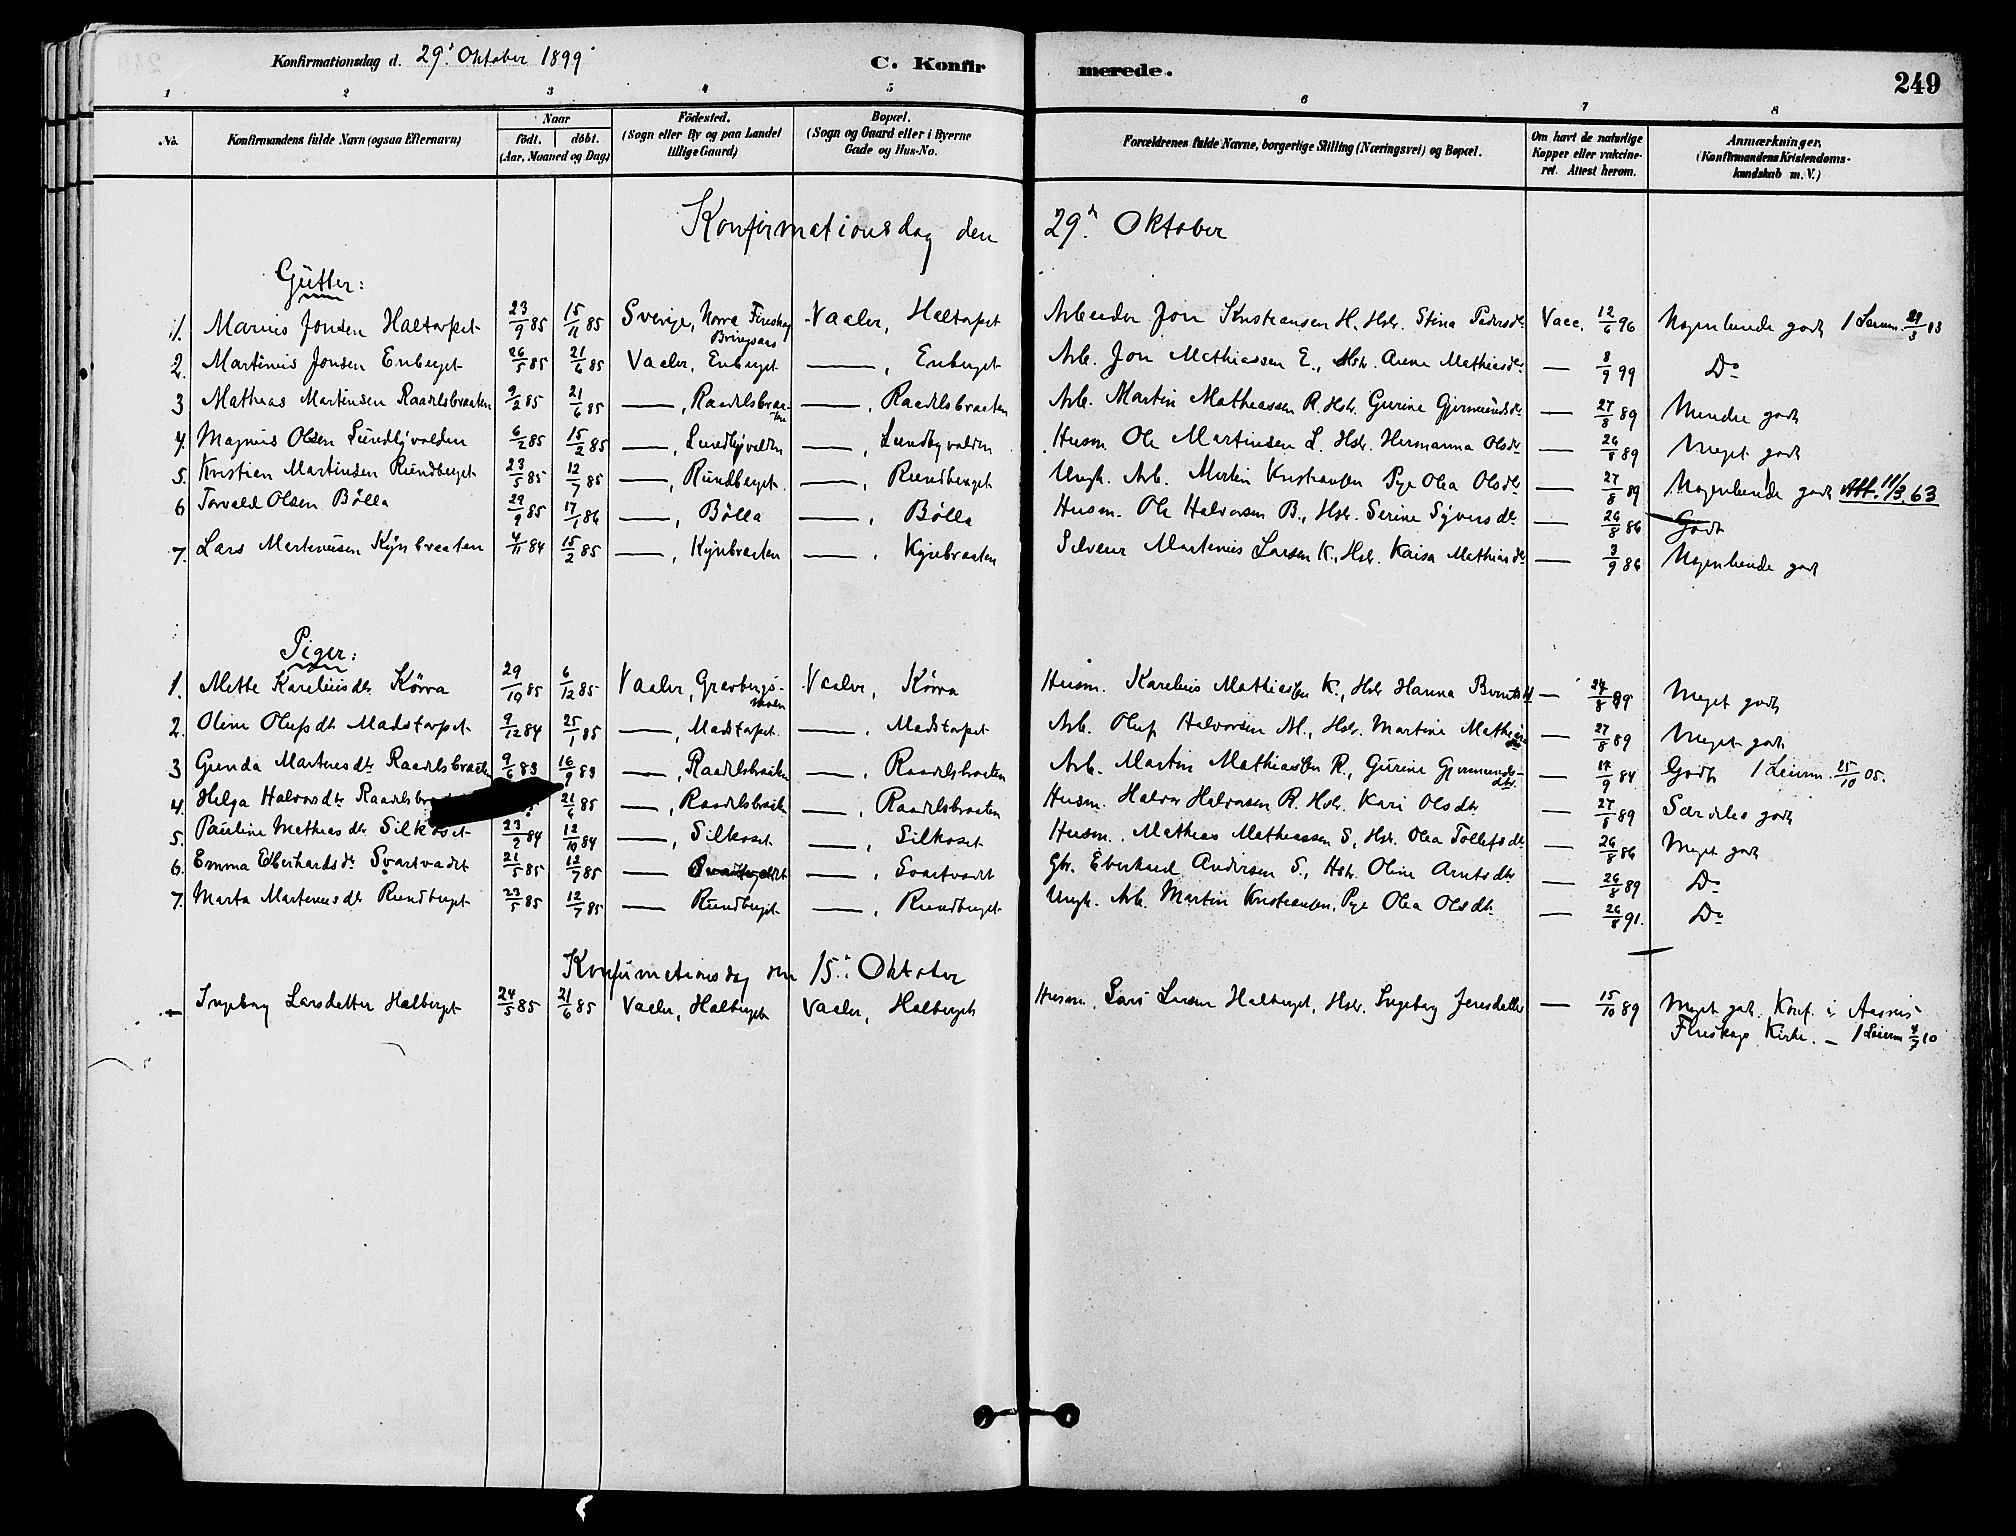 Konfirmationsdag d. 29' Oktober 1899.
C. Konfirmerede.
249
1 2 3 4 5 6 7 8
No. Konfirmandens fulde Navn (ogsaa Efternavn) Naar födt. döbt. (Aar, Maaned og Dag) Födested. (Sogn eller By og paa Landet tillige Gaard) Bopæl. (Sogn og Gaard eller i Byerne Gade og Hus-No. Forældrenes fulde Navne, borgerlige Stilling (Næringsvei) og Bopæl. Om havt de naturlige Kopper eller vakcineret. Attest herom. Anmærkninger. (Konfirmandens Kristendomskundskab m. V.)
Konfirmationsdag den 29de Oktober
Gutter:
1. Marius Jonsen Haltorpet 23/9 85 15/11 85 Sverige, Norra Finskog Vaaler, Haltorpet Arbeider Jon Kristiansen H. Hstr. Stina Pedersdr. Vacc. 12/6 96 Nogenlunde godt
2. Martinius Jonsen Enberget 26/5 85 21/6 85 Vaaler, Enberget —, Enberget Arb. Jon Mathiassen E., Hstr. Anne Mathiasdr. — 8/9 99 Do
3 Mathias Martinsen Raadelsbraaten 9/2 85 21/6 85 —, Raadelsbraaten —, Raadelsbraaten Arb. Martin Mathiassen R. Hstr. Gurine Gjermundsdr. — 27/8 89 Mindre godt
4. Magnus Olsen Lundbyvolden 6/2 85 15/2 85 —, Lundbyvolden —, Lundbyvolden Husm. Ole Martinsen L. Hstr. Hermanna Olsdr. — 26/8 89 Meget godt
5. Kristian Martinsen Rundberget 23/5 85 12/7 85 —, Rundberget —, Rundberget Ungk. Arb. Martin Kristiansen Pige Olea Olsdr. — 27/8 89 Nogenlunde godt Att. 11/3 63
6 Torvald Olsen Bölla 29/9 85 17/1 86 —, Bölla —, Bölla Husm. Ole Halvorsen B., Hstr. Serine Syversdr. — 26/8 86 Godt
7. Lars Martiniusen Kynbraaten 4/11 84 15/2 85 —, Kynbraaten —, Kynbraaten Martinius Larsen K., Hstr. Kaisa Mathiasdr. — 3/9 86 Nogenlunde godt
Piger:
1. Mette Kareliusdr. Körra 29/10 85 6/12 85 Vaaler, Gravbergs- Vaaler, Körra Husm. Karelius Mathiassen K., Hstr. Hanna — 27/8 89 Meget godt
2. Oline Olufsdr. Madstorpet 9/12 84 25/1 85 —, Madstorpet —, Madstorpet Arb. Oluf Halvorsen M., Hstr. Martine Mathiasdr. — 27/8 89 Meget godt
3 Gunda Martinsdr. Raadelsbraaten 9/6 83 16/9 83 —, Raadelsbraaten —, Raadelsbraaten Arb. Martin Mathiassen R., Gurine Gjermundsdtr. — 17/9 84 Godt 25/10 05.
4. Helga Halvorsdr. 21/6 85 —, Raadelsbraaten —, Raadelsbraaten Husm. Halvor Halvorsen R. Hstr. Kari Olsdtr. — 27/8 89 Særdeles godt
5. Pauline Mathiasdr. Silkoset 23/2 84 12/10 84 —, Silkoset —, Silkoset Husm. Mathias Mathiassen S., Hstr. Olea Tollefsdr. — 26/8 86 Meget godt
6. Emma Eberhardsdr. Svartvadet 21/5 85 12/7 85 — Svartvadet —, Svartvadet Eberhard Andersen S., Hstr. Oline Arntsdtr. — 26/8 89 Do
7. Marta Martinsdr. Rundberget 23/5 85 12/7 85 — Rundberget —, Rundberget Ungk. Arb. Martin Kristiansen, Pige Olea Olsdtr. — 26/8 91. Do
Konfirmationsdag den 15de Oktober
Ingeborg Larsdatter Halberget 24/5 85 21/6 85 Vaaler, Halberget Vaaler, Halberget Husm. Lars Larsen Halberget, Hstr. Ingeborg Jensdatter — 15/10 89 Meget godt. Konf. i Aasnes
Finskogs Kirke.